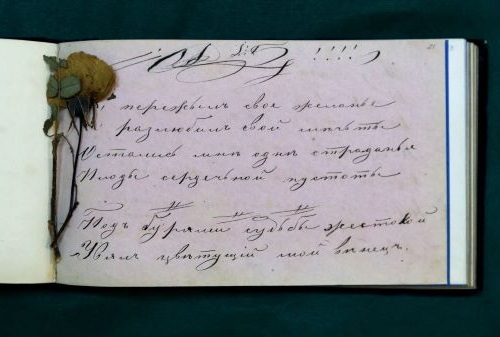 !!!!
пережылъ свое желанье
разлюбилъ свой мѣчты
Остались мнѣ однѣ страданья
Плоды сердечьной пустоты
Подъ бурями судьбы жестокой
Увял цвѣтущій мой вѣнецъ.